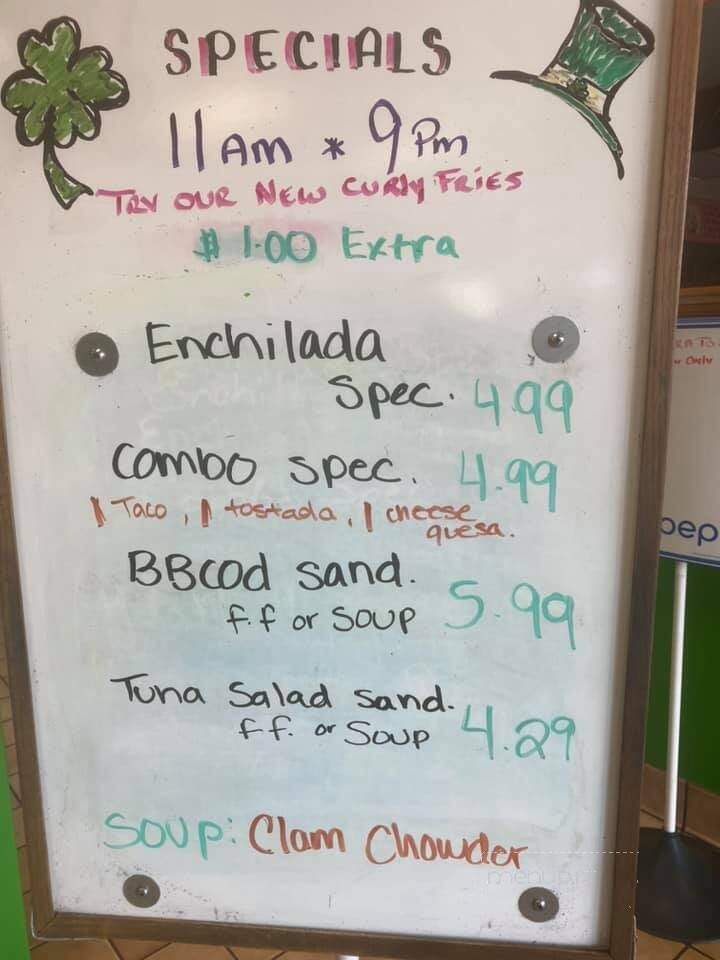 SPECIALS
11 AM * 9 Pm
TRY OUR NEW CURLY FRIES
$1.00 Extra
Enchilada
Spec. 4.99
Combo spec. 4.99
1 Taco, 1 tostada, 1 cheese
quesa.
BBcod sand.
f.f or SOUP 5.99
Tuna Salad Sand.
f f. or Soup 4.29
SOUP: Clam Chowder
pep